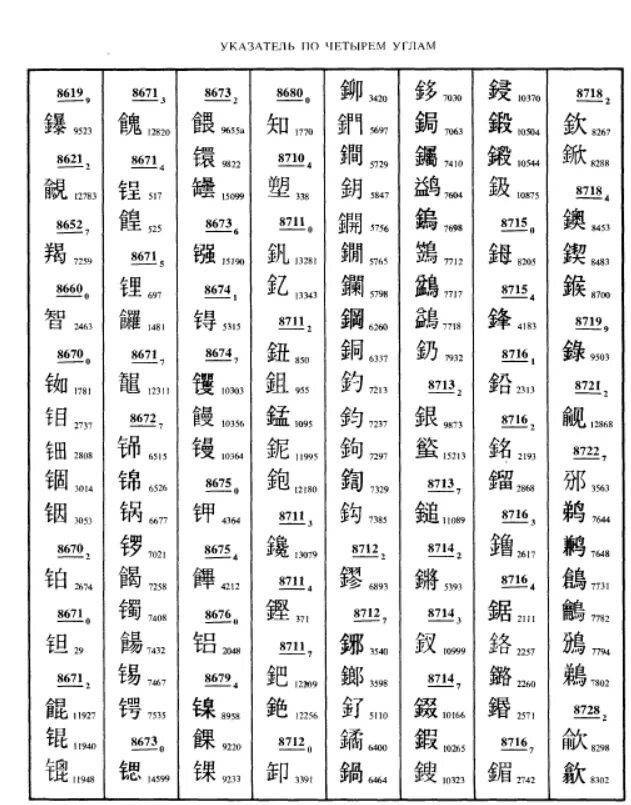 УКАЗАТЕЛЬ ПО ЧЕТЫРЕМ УГЛАМ
8619 9
鑤 9523
8621 2
12783
8652 7
羯 7259
8660 0
智 2463
8670 0
铷 1781
钼 2737
钿 2808
锢 3014
铟 3053
8670 2
铂 2674
8671 0
钽 29
8671 2
餛 11927
锟 11940
11948
8671 3
餽 12820
8671 4
锃 517
餭 525
8671 5
锂 697
饠 1481
8671 7
12311
8672 7
铞 6515
锦 6526
锅 6677
锣 7021
餲 7258
镯 7408
餳 7432
锡 7467
锷 7535
8673 0
锶 14599
8673 2
餵 9655а
镮 9822
15099
8673 6
镪 15190
8674 1
锝 5315
8674 7
䦆 10303
饅 10356
镘 10364
8675 0
钾 4364
8675 4
饆 4212
8676 0
铝 2048
8679 4
镍 8958
餜 9220
锞 9233
8680 0
知 1770
8710 4
塑 338
8711 0
釩 13281
釔 13343
8711 2
鈕 850
鉏 955
錳 1095
鈮 11995
鉋 12180
8711 3
鑱 13079
8711 4
鏗 371
8711 7
鈀 12209
銫 12256
8712 0
卸 3391
鉚 3420
鍆 5697
鐧 5729
鈅 5847
鐦 5756
5765
鑭 5798
鋼 6260
銅 6337
釣 7213
鈞 7237
鉤 7297
7329
鈎 7385
8712 2
鏐 6893
8712 7
鋣 3540
鎯 3598
釕 5110
鐍 6400
鍋 6464
鉹 7030
鋦 7063
钃 7410
鹢 7604
鎢 7698
7712
7717
鷁 7718
釢 7932
8713 2
銀 9873
15213
8713 7
鎚 11089
8714 2
鏘 5393
8714 3
釵 10999
8714 7
錣 10166
鍜 10265
鎪 10323
鋟 10370
鍛 10504
10544
鈒 10875
8715 0
鉧 8205
8715 4
鋒 4183
8716 1
鉛 2313
8716 2
銘 2193
鎦 2868
8716 3
鑥 2617
8716 4
鋸 2111
鉻 2257
鏴 2260
2571
8716 7
鎇 2742
8718 2
欽 8267
鍁 8288
8718 4
8453
鍥 8483
鍭 8700
8719 9
錄 9503
8721 2
觎 12868
8722 7
3563
鹈 7644
鹣 7648
7731
7782
7794
鵜 7802
8728 2
歈 8298
8302